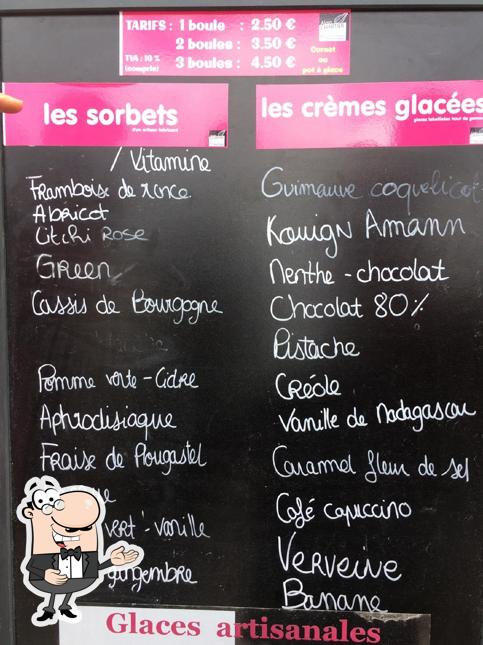 TARIFS : 1 boule : 2.50 €
2 boules : 3.50 €
TVA : 10 % 3 boules : 4.50 €
(compris)
Cornet
ou
pot à glace
les sorbets
d'un artisan fabricant
/ Vitamine
Framboise de ronce
Abricot
Litchi Rose
Green
Cassis de Bourgogne
Pomme verte - Cidre
Aphrodisiaque
Fraise de Plougastel
vert - vanille
gingembre
les crèmes glacées
Guimauve coquelicot
Kouign Amann
Menthe - chocolat
Chocolat 80%
Pistache
Créole
Vanille de Madagascar
Caramel fleur de sel
Café capuccino
Verveine
Banane
Glaces artisanales